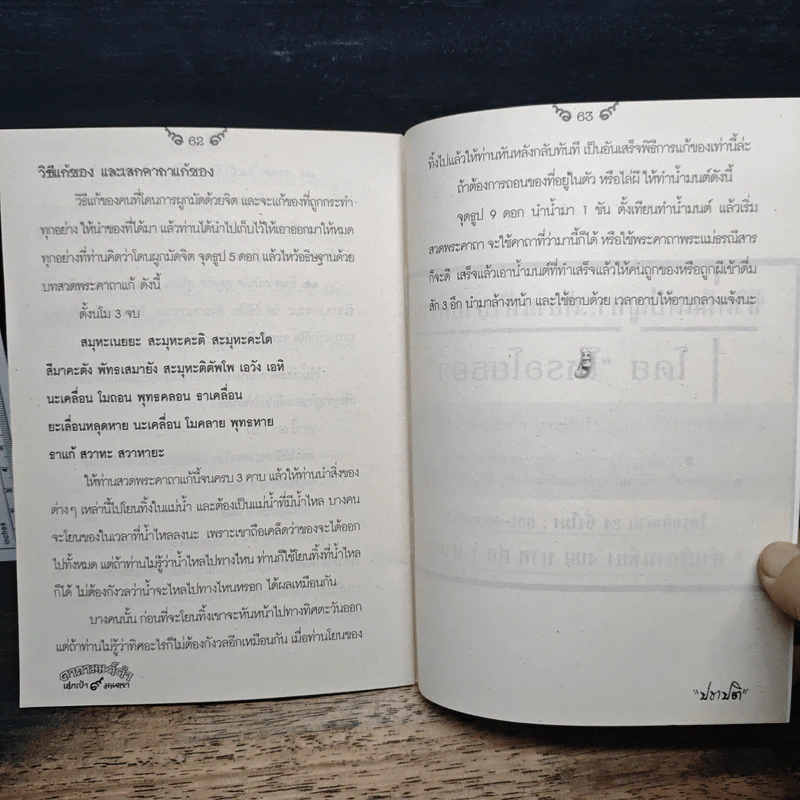 62
วิธีแก้ของ และเสกคาถาแก้ของ
วิธีแก้ของคนที่โดนการผูกมัดด้วยจิต และจะแก้ของที่ถูกกระทำ
ทุกอย่าง ให้นำของที่ได้มา แล้วท่านได้นำไปเก็บไว้ให้เอาออกมาให้หมด
ทุกอย่างที่ท่านคิดว่าโดนผูกมัดจิต จุดธูป 5 ดอก แล้วไหว้อธิษฐานด้วย
บทสวดพระคาถาแก้ ดังนี้
ตั้งนโม 3 จบ
สมุหะเนยยะ สะมุหะคะติ สะมุหะคะโต
สีมาคะตัง พัทธเสมายัง สะมุหะติตัพโพ เอวัง เอหิ
นะเคลื่อน โมถอน พุทธคลอน ธาเคลื่อน
ยะเลื่อนหลุดหาย นะเคลื่อน โมคลาย พุทธหาย
ธาแก้ สวาหะ สวาหายะ
ให้ท่านสวดพระคาถาแก้นี้จนครบ 3 คาบ แล้วให้ท่านนำสิ่งของ
ต่างๆ เหล่านี้ไปโยนทิ้งในแม่น้ำ และต้องเป็นแม่น้ำที่มีน้ำไหล บางคน
จะโยนของในเวลาที่น้ำไหลลงนะ เพราะเขาถือเคล็ดว่าของจะได้ออก
ไปทั้งหมด แต่ถ้าท่านไม่รู้ว่าน้ำไหลไปทางไหน ท่านก็ใช้โยนทิ้งที่น้ำไหล
ก็ได้ ไม่ต้องกังวลว่าน้ำจะไหลไปทางไหนหรอก ได้ผลเหมือนกัน
บางคนนั้น ก่อนที่จะโยนทิ้งเขาจะหันหน้าไปทางทิศตะวันออก
แต่ถ้าท่านไม่รู้ว่าทิศอะไรก็ไม่ต้องกังวลอีกเหมือนกัน เมื่อท่านโยนของ
63
ทิ้งไปแล้วให้ท่านหันหลังกลับทันที เป็นอันเสร็จพิธีการแก้ของเท่านี้ล่ะ
ถ้าต้องการถอนของที่อยู่ในตัว หรือไล่ผี ให้ทำน้ำมนต์ดังนี้
จุดธูป 9 ดอก นำน้ำมา 1 ขัน ตั้งเทียนทำน้ำมนต์ แล้วเริ่ม
สวดพระคาถา จะใช้คาถาที่ว่ามานี้ก็ได้ หรือใช้พระคาถาพระแม่ธรณีสาร
ก็จะดี เสร็จแล้วเอาน้ำมนต์ที่ทำเสร็จแล้วให้คนถูกของหรือถูกผีเข้าดื่ม
สัก 3 อึก นำมาล้างหน้า และใช้อาบด้วย เวลาอาบให้อาบกลางแจ้งนะ
"ปราปติ"